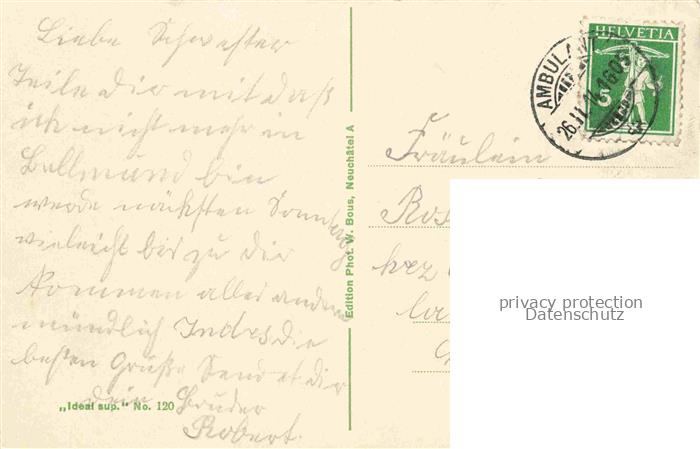 Liebe Schwester
Teile dir mit daß
ich nicht mehr in
Bellmund bin
werde nächsten Sonntag
vieleicht bis zu dir
kommen alles andere
mündlich Indes die
besten Grüße Sendet dir
dein Bruder
Robert.
„Ideal sup." No. 120
Edition Phot. W. Bous, Neuchâtel A
HELVETIA
5
AMBULANT
26.II.14.1605
Fräulein
privacy protection
Datenschutz